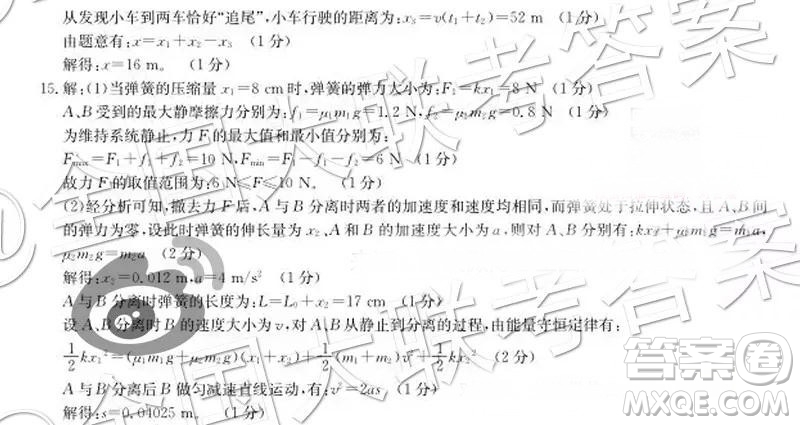 从发现小车到两车恰好“追尾”,小车行驶的距离为:x₃=v(t₁+t₂)=52 m (1分)
由题意有:x=x₁+x₂-x₃ (1分)
解得:x=16 m。 (1分)
15.解:(1)当弹簧的压缩量 x₁=8 cm时,弹簧的弹力大小为:F₁=kx₁=8 N (1分)
A、B受到的最大静摩擦力分别为:f₁=μ₁m₁g=1.2 N,f₂=μ₂m₂g=0.8 N (1分)
为维持系统静止,力 F的最大值和最小值分别为:
Fmax=F₁+f₁+f₂=10 N,Fmin=F₁-f₁-f₂=6 N (1分)
故力 F的取值范围为:6 N≤F≤10 N。 (1分)
(2)经分析可知,撤去力 F后,A 与 B分离时两者的加速度和速度均相同,而弹簧处于拉伸状态,且 A、B间
的弹力为零,设此时弹簧的伸长量为 x₂、A 和 B的加速度大小为 a,则对 A、B分别有:kx₂+μ₁m₁g=m₁a,
μ₂m₂g=m₂a (2分)
解得:x₂=0.012 m,a=4 m/s² (1分)
A 与 B分离时弹簧的长度为:L=L₀+x₂=17 cm (1分)
设 A、B分离时 B的速度大小为 v,对 A、B从静止到分离的过程,由能量守恒定律有:
½kx₁²=(μ₁m₁g+μ₂m₂g)(x₁+x₂)+½(m₁+m₂)v²+½kx₂² (2分)
A 与 B分离后 B做匀减速直线运动,有:v²=2as (1分)
解得:s=0.04025 m。 (1分)
@全国大联考答案
答案卷
MXQE.COM